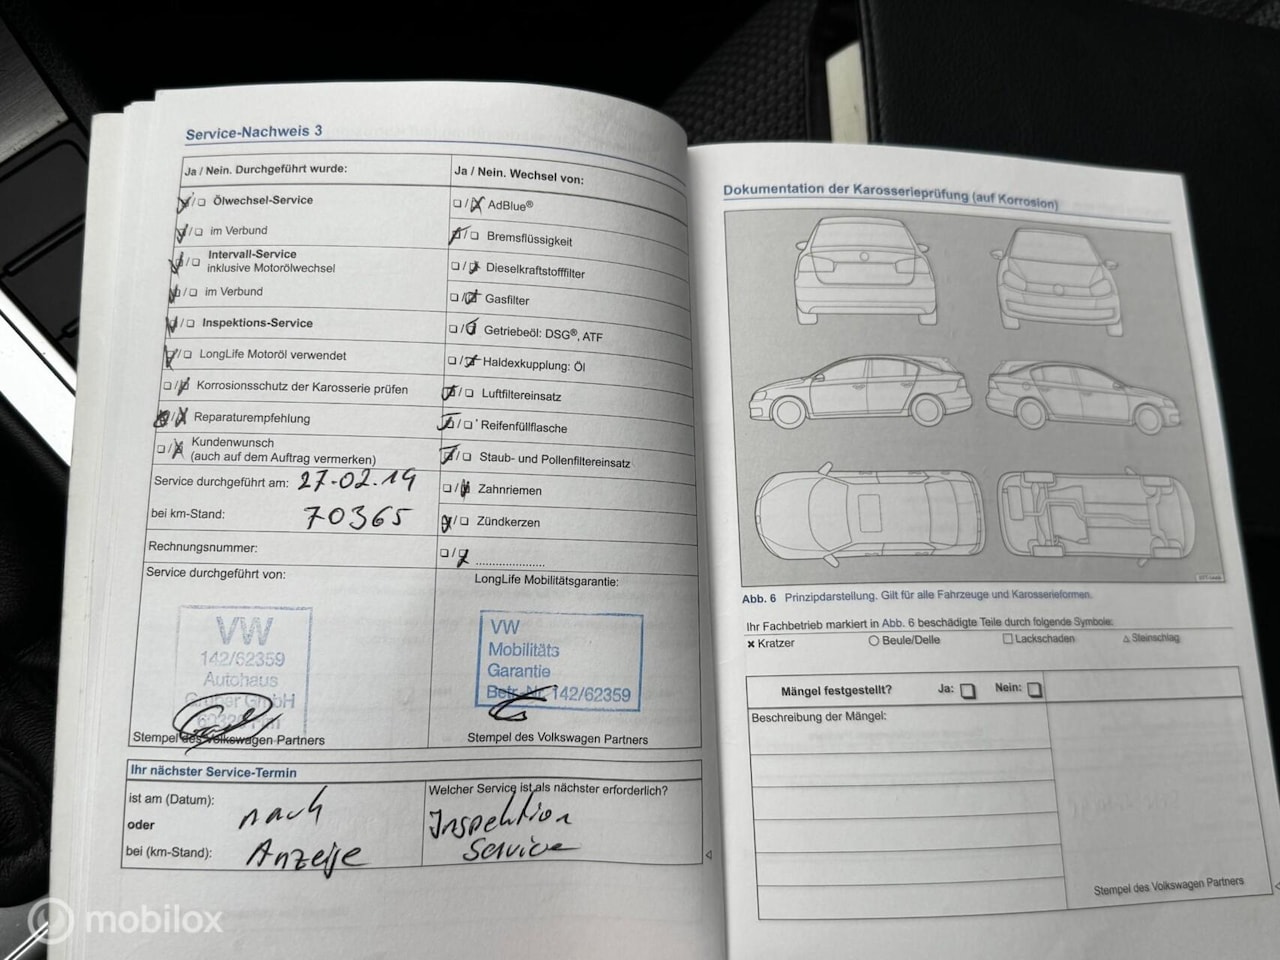 Service-Nachweis 3
Ja / Nein. Durchgeführt wurde:
Ölwechsel-Service
im Verbund
Intervall-Service
inklusive Motorölwechsel
im Verbund
Inspektions-Service
LongLife Motoröl verwendet
Korrosionsschutz der Karosserie prüfen
Reparaturempfehlung
Kundenwunsch
(auch auf dem Auftrag vermerken)
Service durchgeführt am: 27-02.19
bei km-Stand: 70365
Rechnungsnummer:
Service durchgeführt von:
VW
142/62359
Autohaus
GmbH
Stempel des Volkswagen Partners
Ja / Nein. Wechsel von:
AdBlue®
Bremsflüssigkeit
Dieselkraftstofffilter
Gasfilter
Getriebeöl: DSG®, ATF
Haldexkupplung: Öl
Luftfiltereinsatz
Reifenfüllflasche
Staub- und Pollenfiltereinsatz
Zahnriemen
Zündkerzen
LongLife Mobilitätsgarantie:
VW
Mobilitäts
Garantie
Betr.-Nr. 142/62359
Stempel des Volkswagen Partners
Ihr nächster Service-Termin
ist am (Datum): nach
oder
bei (km-Stand): Anzeige
Welcher Service ist als nächster erforderlich?
Inspektion
Service
Dokumentation der Karosserieprüfung (auf Korrosion)
Abb. 6 Prinzipdarstellung. Gilt für alle Fahrzeuge und Karosserieformen.
Ihr Fachbetrieb markiert in Abb. 6 beschädigte Teile durch folgende Symbole:
× Kratzer ○ Beule/Delle □ Lackschaden △ Steinschlag
Mängel festgestellt? Ja: Nein:
Beschreibung der Mängel:
Stempel des Volkswagen Partners
mobilox